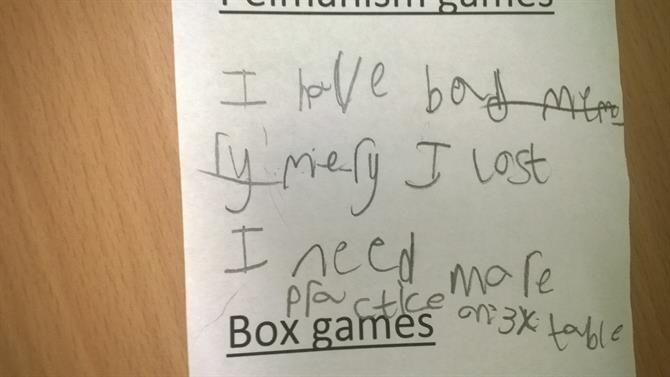 Pelmanism games
I have bad memo
ry miery I lost
I need more
practice on 3x table
Box games